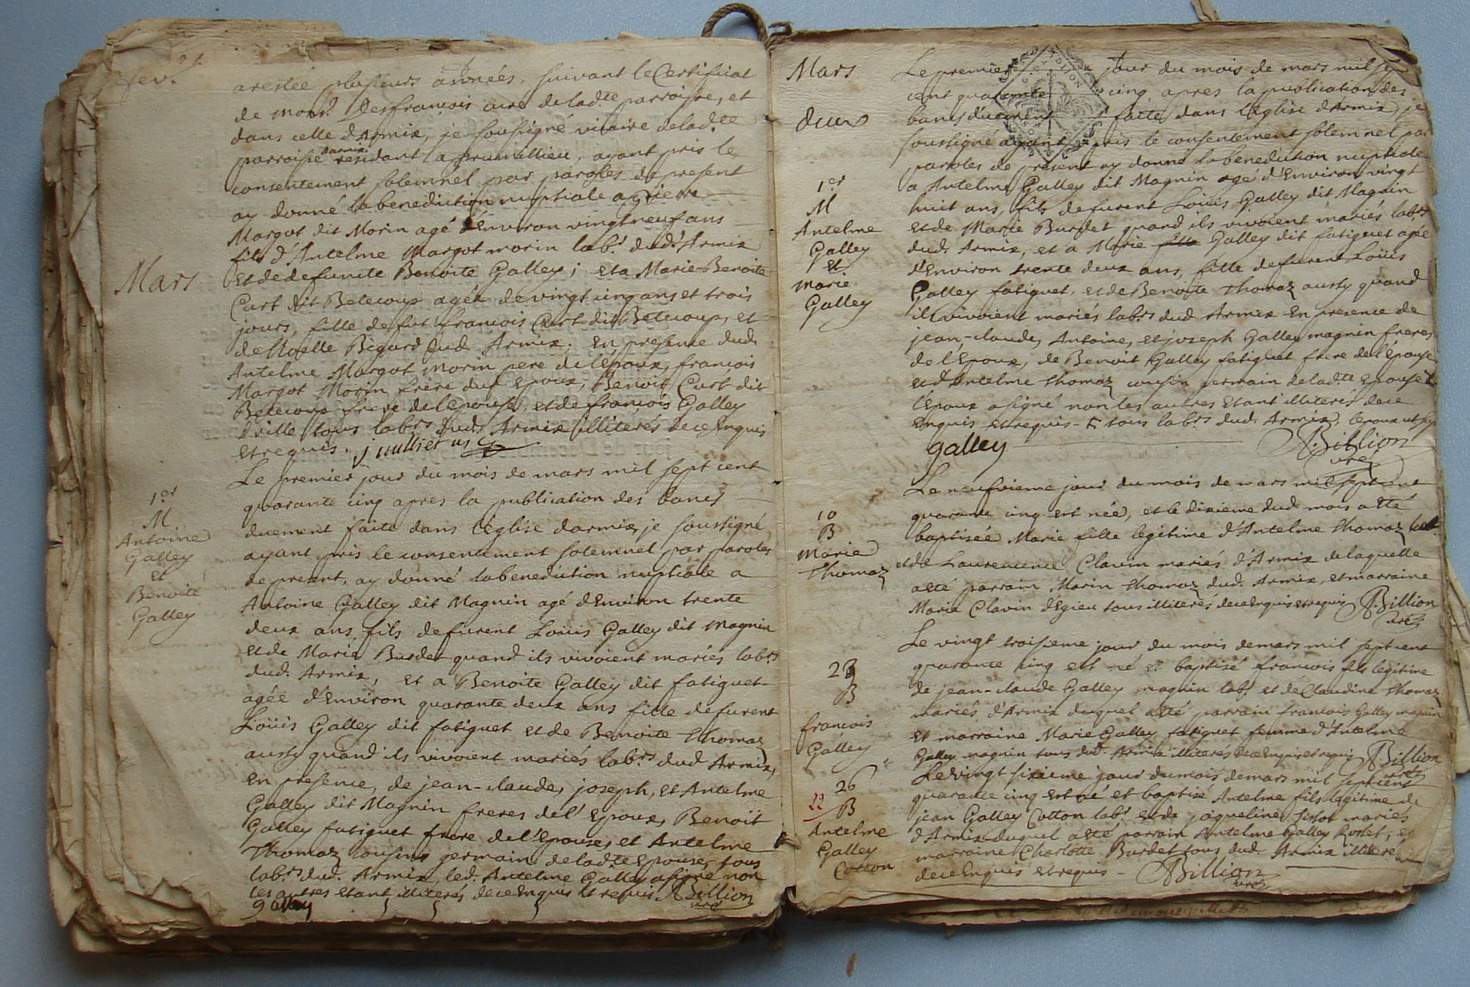 fev.
arestée plusieurs années, suivant le Certificat
de mond. Desfrancois curé de lad.te parroisse, et
dans celle d'Armix, je soussigné vicaire de lad.te
parroisse d'armix residant a prumillieu, ayant pris le
consentement solemnel par paroles de present
ay donné la benediction nuptiale a
Margot dit Morin agé d'Environ vingt neuf ans
fils d'Antelme Margot morin lab.r dud. Armix
Et de defunte Benoite Galley; et a Marie Benoite
Mars
Curt dit Belecoup agée de vingt cinq ans et trois
jours, fille de fut francois Curt dit Belecoup, et
de Noelle Begard dud. Armix; En presence dud.
Antelme Margot morin pere de l'Epoux, francois
Margot Morin frere dud. Epoux, Benoit Curt dit
Belecoup frere de l'epouse, et de francois Galley
tous lab.rs dud. Armix illiteres de ce Enquis
et requis.
Le premier jour du mois de mars mil sept cent
quarante cinq apres la publication des bancs
1er
M
Antoine
Galley
et
Benoite
Galley
duement faite dans l'Eglise d'armix, je soussigné
ayant pris le consentement solemnel par paroles
de present, ay donné la benediction nuptiale a
Antoine Galley dit Magnin agé d'Environ trente
deux ans, fils de furent Loüis Galley dit Magnin
et de Marie Burdet quand ils vivoient mariés lab.rs
dud. Armix, et a Benoite Galley dit fatiguet
agée d'Environ quarante deux ans fille de furent
Loüis Galley dit fatiguet et de Benoite Thomaz
aussy quand ils vivoient mariés lab.rs dud. Armix,
En presence, de jean-claude, joseph, et Antelme
Galley dit Magnin freres de l'Epoux, Benoit
Galley fatiguet frere de l'Epouse, et Antelme
Thomaz cousin germain de lad.te Epouse, tous
lab.rs dud. Armix, led. Antelme Galley a signé non
les autres etant illiterés de ce Enquis et requis Billion
galley vic.re
Mars
Deux
Le premier jour du mois de mars mil sept
cent quarante cinq apres la publication des
bancs duement faitte dans l'Eglise d'Armix, je
soussigné ayant pris le consentement solemnel par
paroles de present ay donné la benediction nuptiale
1er
M
Antelme
Galley
et
Marie
Galley
a Antelme Galley dit Magnin agé d'Environ vingt
huit ans, fils de furent Loüis Galley dit Magnin
et de Marie Burdet quand ils vivoient mariés lab.rs
dud. Armix, et a Marie Galley dit fatiguet agée
d'Environ trente deux ans, fille de furent Loüis
Galley fatiguet, et de Benoite Thomaz aussy quand
ils vivoient mariés lab.rs dud. Armix En presence de
jean-claude, Antoine, et joseph Galley magnin freres
de l'Epoux, de Benoit Galley fatiguet frere de l'Epouse
et d'Antelme Thomaz cousin germain de lad.te Epouse
l'epoux a signé non les autres Etant illiterés de ce
Enquis et requis - tous lab.rs dud. Armix,
galley Billion
vic.re
Le neufvieme jour du mois de mars mil sept cent
10
B
Marie
Thomaz
quarante cinq est née, et le dixieme dud. mois a eté
baptisée Marie fille legitime d'Antelme Thomaz
et de Laurence Clavin mariés d'Armix de laquelle
a eté parrain Marin Thomaz dud. Armix, et marraine
Marie Clavin d'Egieu tous illiterés de ce enquis et requis Billion
vic.re
Le vingt troisieme jour du mois de mars mil sept cent
23
B
francois
Galley
quarante cinq est né et baptisé francois fils legitime
de jean-claude Galley magnin lab.r et de Claudine Thomaz
mariés d'Armix duquel a eté parrain francois Galley magnin
et marraine Marie Galley fatiguet femme d'Antelme
Galley magnin tous dud. Armix illiterés de ce Enquis et requis Billion
Le vingt sixieme jour du mois de mars mil sept cent
26
22
B
Antelme
Galley
Cotton
quarante cinq est né et baptisé Antelme fils legitime de
jean Galley Cotton lab.r et de jaqueline mariés
d'Armix duquel a eté parrain Antelme Galley et
marraine Charlotte Burdet tous dud. Armix illiterés
de ce Enquis et requis - Billion
vic.re